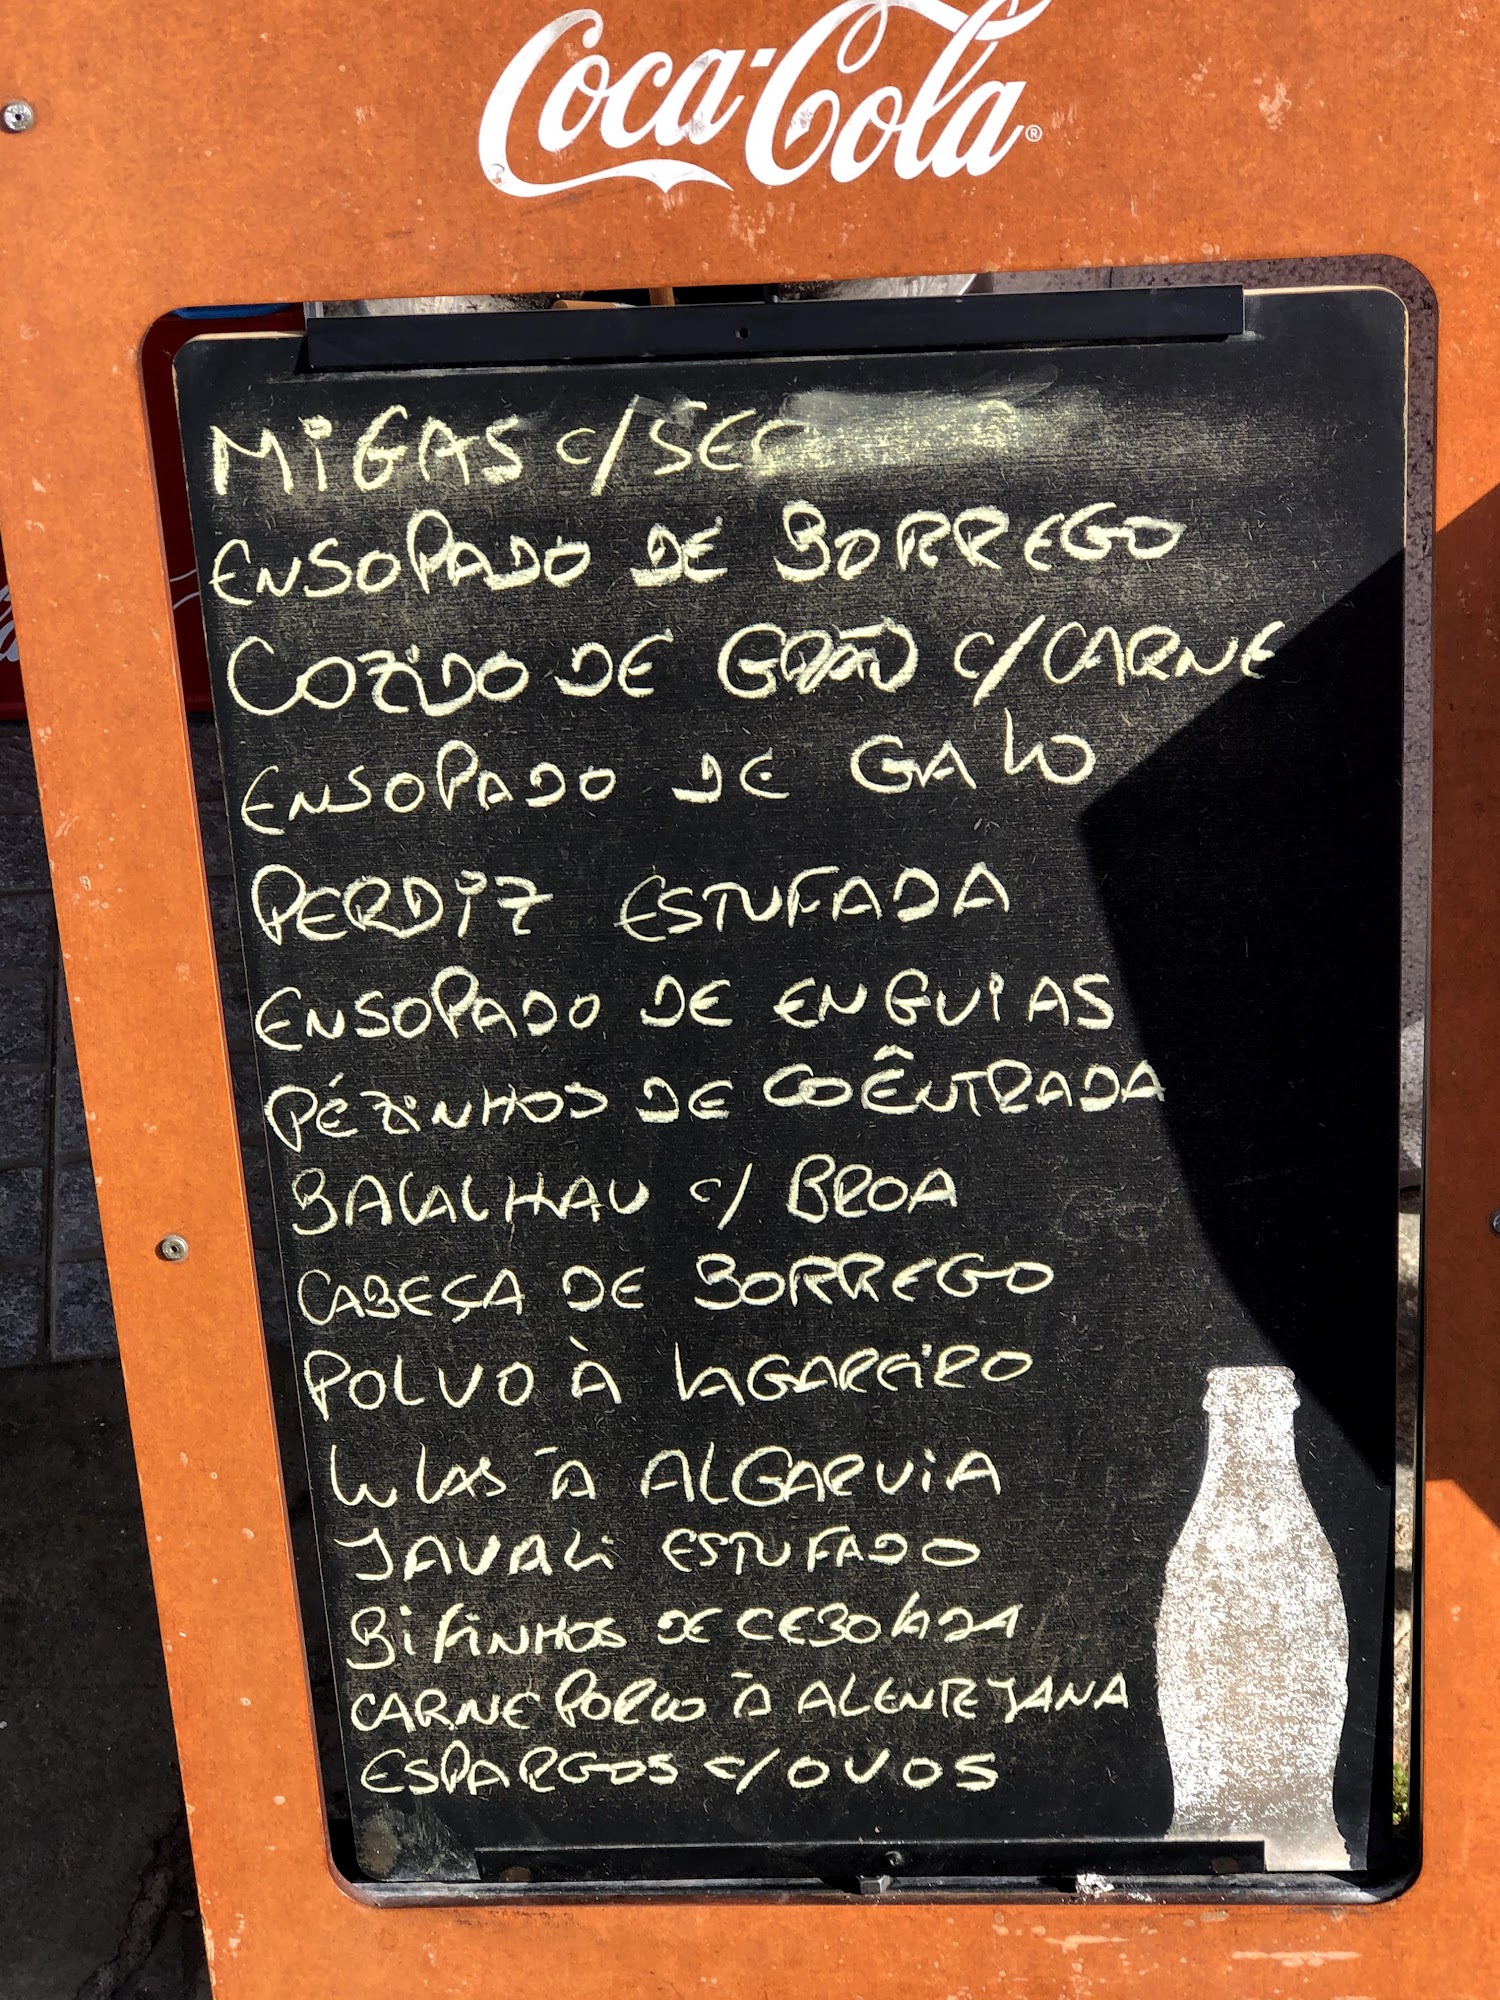 Coca-Cola®
MIGAS C/SEC
ENSOPADO DE BORREGO
COZIDO DE GRÃO C/CARNE
ENSOPADO DE GALO
PERDIZ ESTUFADA
ENSOPADO DE ENGUIAS
PÉZINHOS DE COÊNTRADA
BACALHAU C/ BROA
CABEÇA DE BORREGO
POLVO À LAGAREIRO
LULAS À ALGARVIA
JAVALI ESTUFADO
BIFINHOS DE CEBOLADA
CARNE PORCO À ALENTEJANA
ESPARGOS C/OVOS